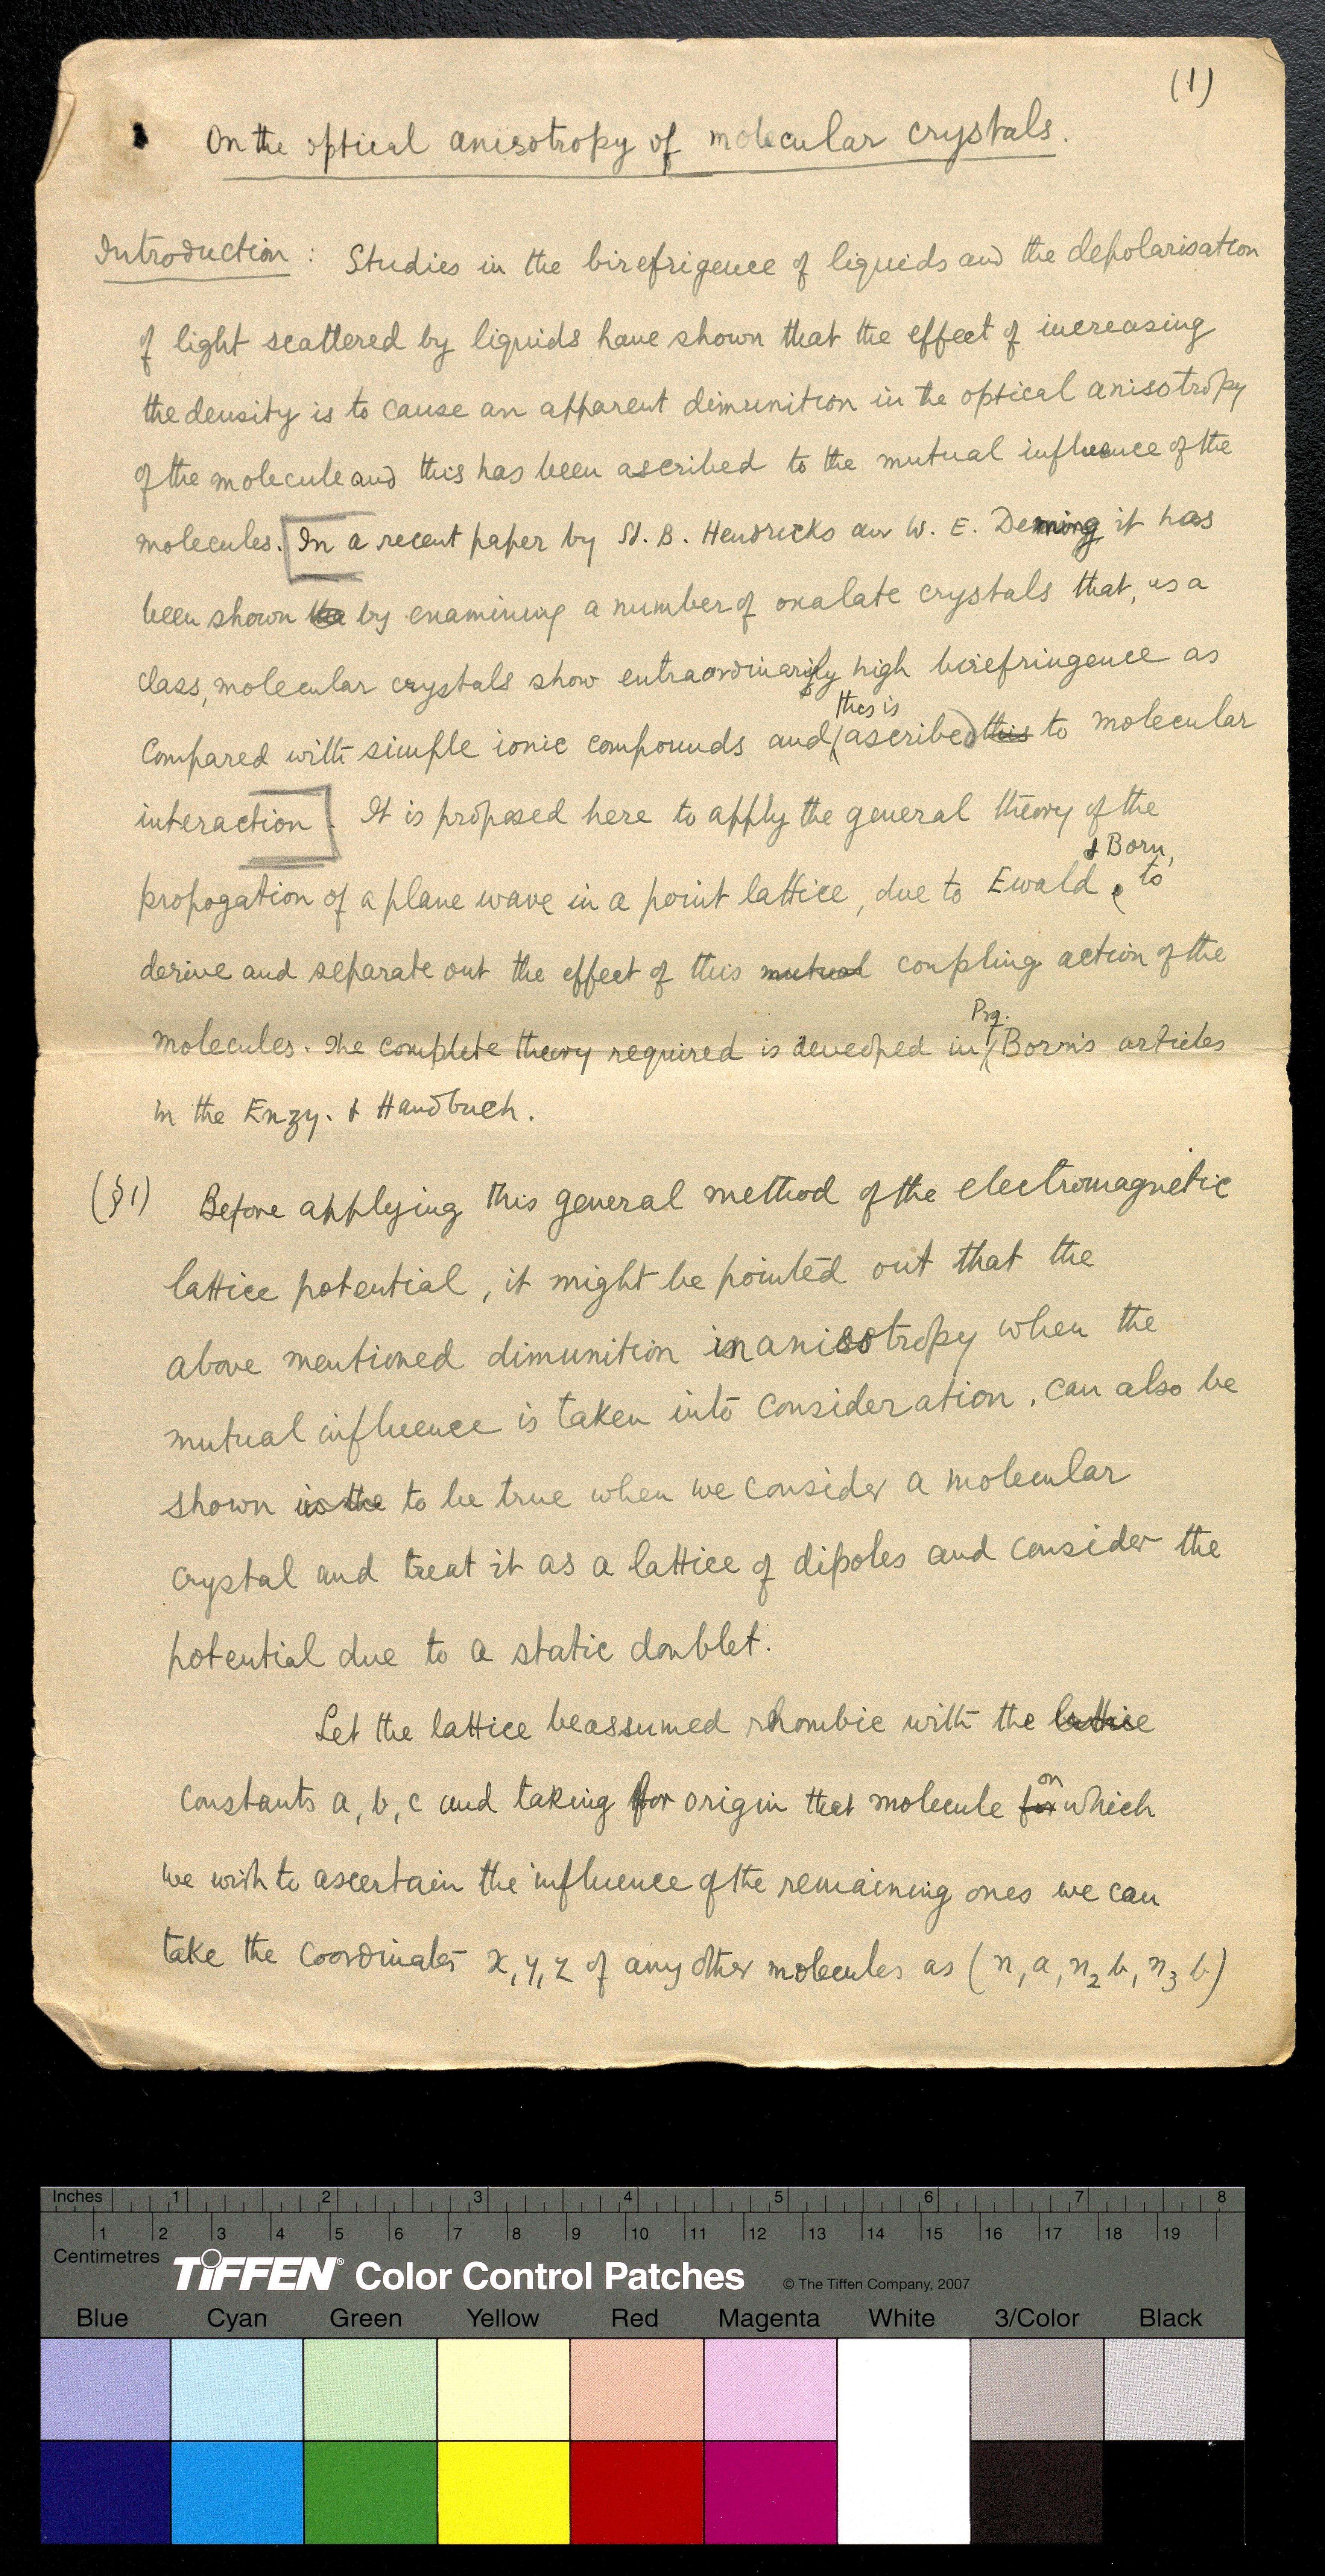 (1)
On the optical anisotropy of molecular crystals.
Introduction : Studies in the birefrigence of liquids and the depolarisation
of light scattered by liquids have shown that the effect of increasing
the density is to cause an apparent dimunition in the optical anisotropy
of the molecule and this has been ascribed to the mutual influence of the
molecules. [In a recent paper by St. B. Hendricks and W. E. Deming it has
been shown by examining a number of oxalate crystals that, as a
class, molecular crystals show extraordinarily high birefringence as
this is
compared with simple ionic compounds and (ascribed) this to molecular
interaction]. It is proposed here to apply the general theory of the
& Born,
propogation of a plane wave in a point lattice, due to Ewald to
derive and separate out the effect of this mutual coupling action of the
Prof.
molecules. The complete theory required is deveoped in Born's articles
in the Enzy. & Handbuch.
(§1) Before applying this general method of the electromagnetic
lattice potential, it might be pointed out that the
above mentioned dimunition in anisotropy when the
mutual influence is taken into consideration, can also be
shown is the to be true when we consider a molecular
crystal and treat it as a lattice of dipoles and consider the
potential due to a static doublet.
Let the lattice be assumed rhombic with the lattice
on
constants a, b, c and taking for origin that molecule for which
we wish to ascertain the influence of the remaining ones we can
take the coordinates x, y, z of any other molecules as (n, a, n2 b, n3 b)
Inches 1 2 3 4 5 6 7 8
1 2 3 4 5 6 7 8 9 10 11 12 13 14 15 16 17 18 19
Centimetres
TIFFEN® Color Control Patches © The Tiffen Company, 2007
Blue Cyan Green Yellow Red Magenta White 3/Color Black